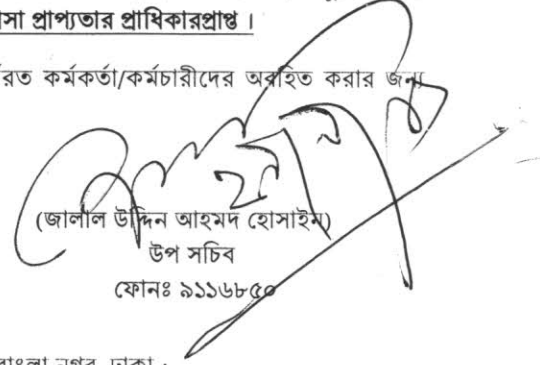 সা প্রাপ্যতার প্রাধিকারপ্রাপ্ত ।
রত কর্মকর্তা/কর্মচারীদের অবহিত করার জন্য
(জালাল উদ্দিন আহমদ হোসাইন)
উপ সচিব
ফোনঃ ৯১১৬৮৫০
বাংলা নগর, ঢাকা ।